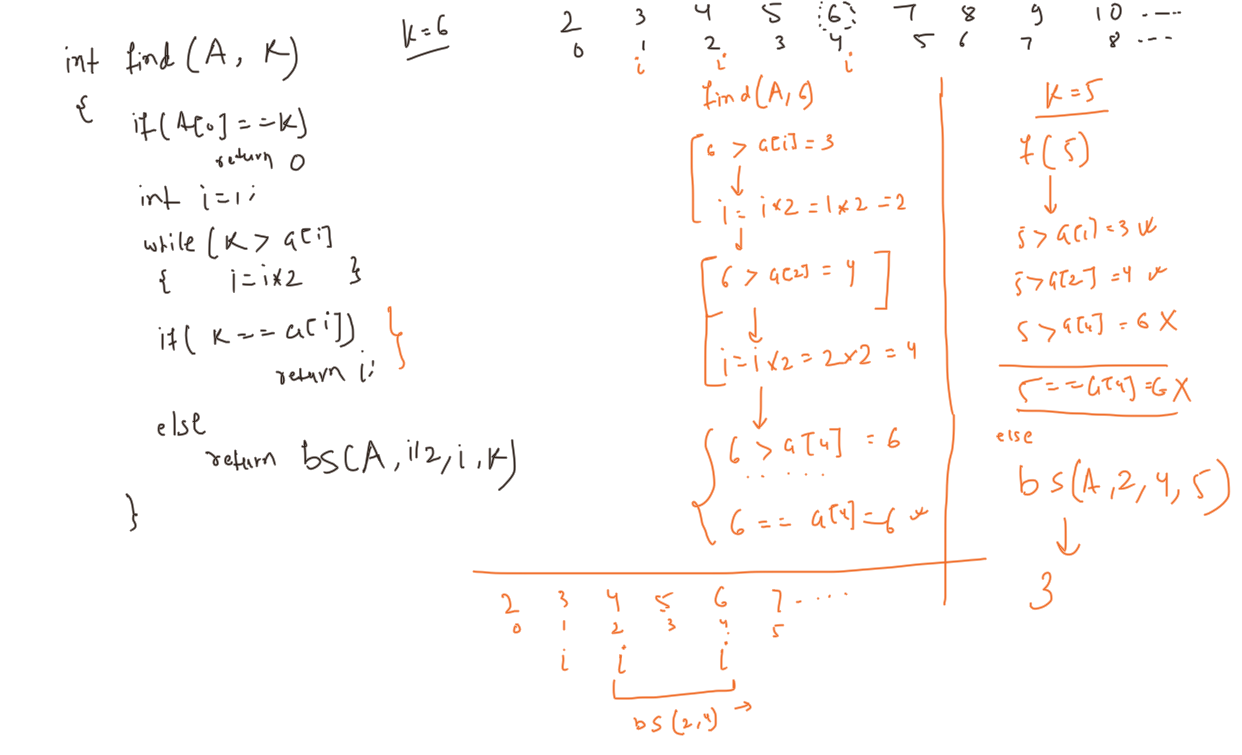 int find (A, K)
{
if(A[0]==K)
return 0
int i=1;
while (K > a[i]
{ i=i*2 }
if( K == a[i])
return i;
else
return bs(A, i/2, i, K)
}
K=6
2 3 4 5 6 7 8 9 10 ....
0 1 2 3 4 5 6 7 8 ---
i i i
find(A,6)
6 > a[i] = 3
i = i*2 = 1*2 = 2
6 > a[2] = 4
i = i*2 = 2*2 = 4
6 > a[4] = 6
......
6 == a[4] = 6
K=5
f(5)
5 > a[1] = 3
5 > a[2] = 4
5 > a[4] = 6 X
5 == a[4] = 6 X
else
bs(A, 2, 4, 5)
3
2 3 4 5 6 7 - ....
0 1 2 3 4 5
i i i
bs(2,4)